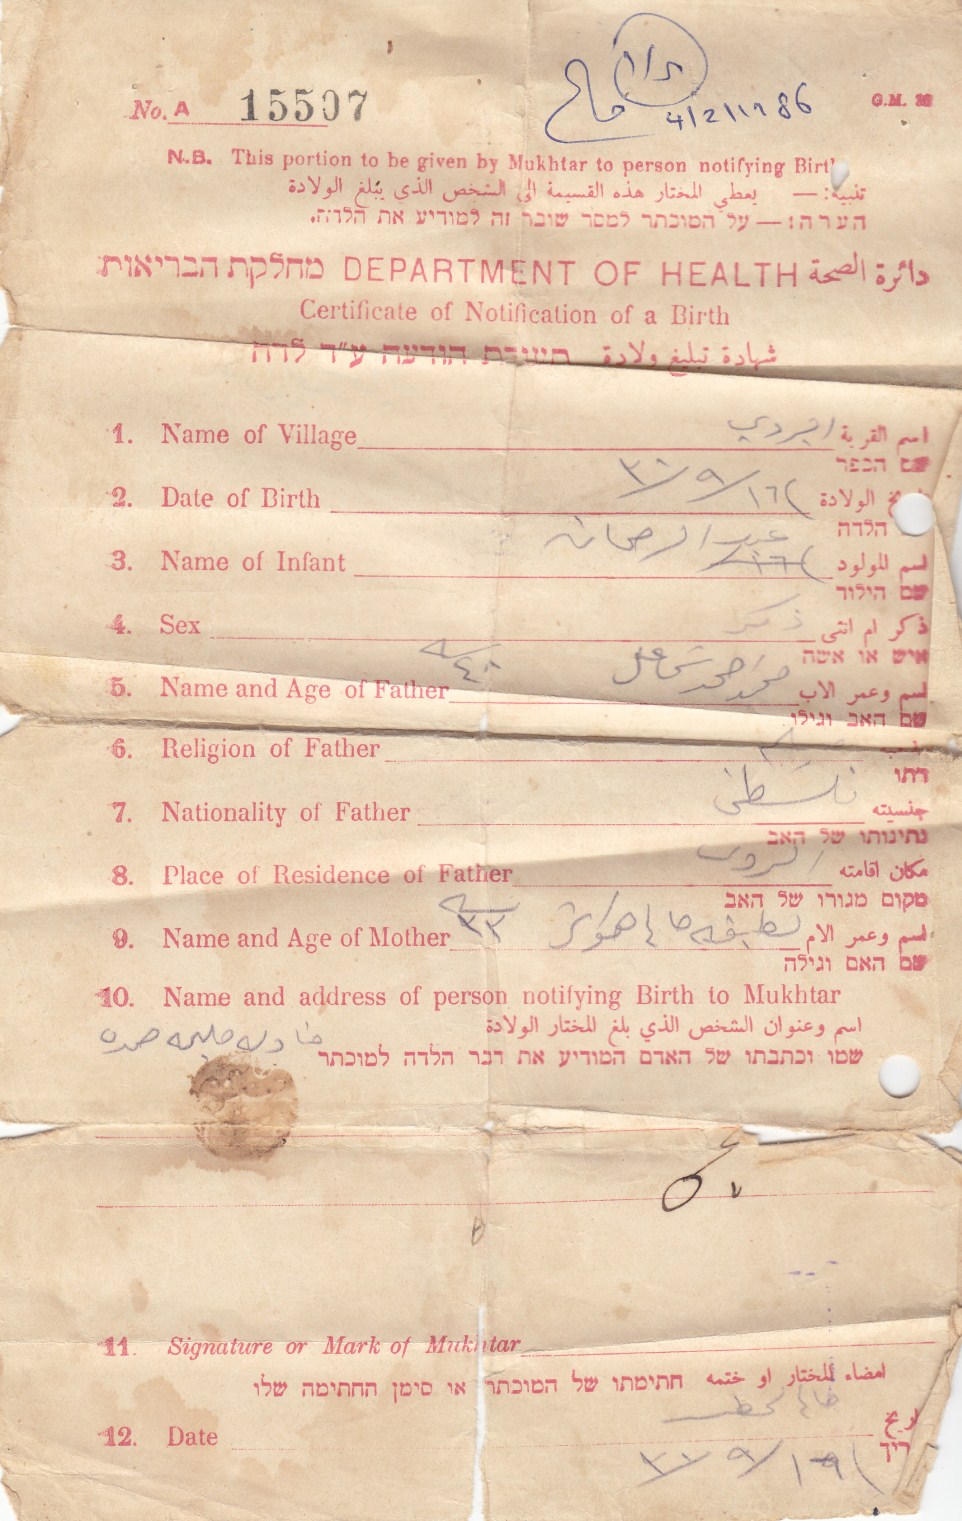 No. A 15507
4/2/1986
G.M. 38
N.B. This portion to be given by Mukhtar to person notifying Birth
تنبيه: — يعطي المختار هذه القسيمة الى الشخص الذي يبلغ الولادة
הערה: — על המוכתר למסר שובר זה למודיע את הלדה.
دائرة الصحة DEPARTMENT OF HEALTH מחלקת הבריאות
Certificate of Notification of a Birth
شهادة تبليغ ولادة תעודת הודעה ע"ד לדה
1. Name of Village اسم القرية
שם הכפר
2. Date of Birth ١٦/٩/ الولادة
הלדה
3. Name of Infant عبد الرحمان اسم المولود
שם הילוד
4. Sex ذكر ذكر ام انثى
איש או אשה
5. Name and Age of Father محمد احمد ٤٠ سنه اسم وعمر الاب
שם האב וגילו
6. Religion of Father
דתו
7. Nationality of Father فلسطيني جنسيته
נתינותו של האב
8. Place of Residence of Father مكان اقامته
מקום מגורו של האב
9. Name and Age of Mother لطيفه ٣٣ سنه اسم وعمر الام
שם האם וגילה
10. Name and address of person notifying Birth to Mukhtar
اسم وعنوان الشخص الذي بلغ المختار الولادة
שמו וכתבתו של האדם המודיע את דבר הלדה למוכתר
11. Signature or Mark of Mukhtar
امضاء المختار او ختمه חתימתו של המוכתר או סימן החתימה שלו
12. Date